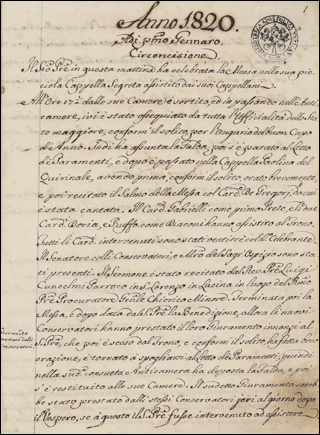 1
Anno 1820.
A dì primo Gennaro.
Circoncisione
Il Sto Pre in questa mattina ha celebrata la Messa nella sua pic-
ciola Cappella Segreta assistito dai suoi Cappellani.
All'Ore 17 dalle sue Camere è sortito, ed in passando nelle Anti-
camere, ivi è stato ossequiato da tutta l'Uffizialità dello Sta-
to maggiore, conform' il solito, per l'augurio del buon Capo
de Anno. Indi ha assunta la Falda, poi s'è parato al Letto
de Paramenti, e dopo è passato nella Cappella Paolina del
Quirinale, avendo prima, conform' il solito, orato brevemente,
e poi recitato il Salmo della Messa col Card. De Gregorj, da cui
è stata cantata. Il Card. Gabrielli come primo Prete, e li due
Card. Doria, e Ruffo come Diaconi hanno assistito al Trono.
Tutti li Card. intervenuti sono stati vestiti
Il Senatore colli Conservatori, e
ti presenti. Il Sermone è stato recitato dal Rev. Pre Luigi
Cunectini Parroco in S. Lorenzo in Lucina in luogo del
Pre Procuratore Gente Chierico Minore. Terminata poi la
Messa, e dopo data dal S. Pre la Benedizione, allora li nuovi
Conservatori hanno prestato il loro Giuramento innanzi al
S. Pre, che poi è sceso dal Trono, e conform' il solito ha fatta brev.
orazione, è tornato a spogliarsi al Letto de Paramenti, quindi
nella sudta consueta Anticamera ha deposta la Falda, e poi
s'è restituito alle sue Camere. Il sudetto Giuramento sareb-
be stato prestato dalli stessi Conservatori jeri al giorno dopo
il Vespero, se a questo il S. Pre fusse intervenuto ad assistere.
Giuramento
prestato dalli
Conservatori